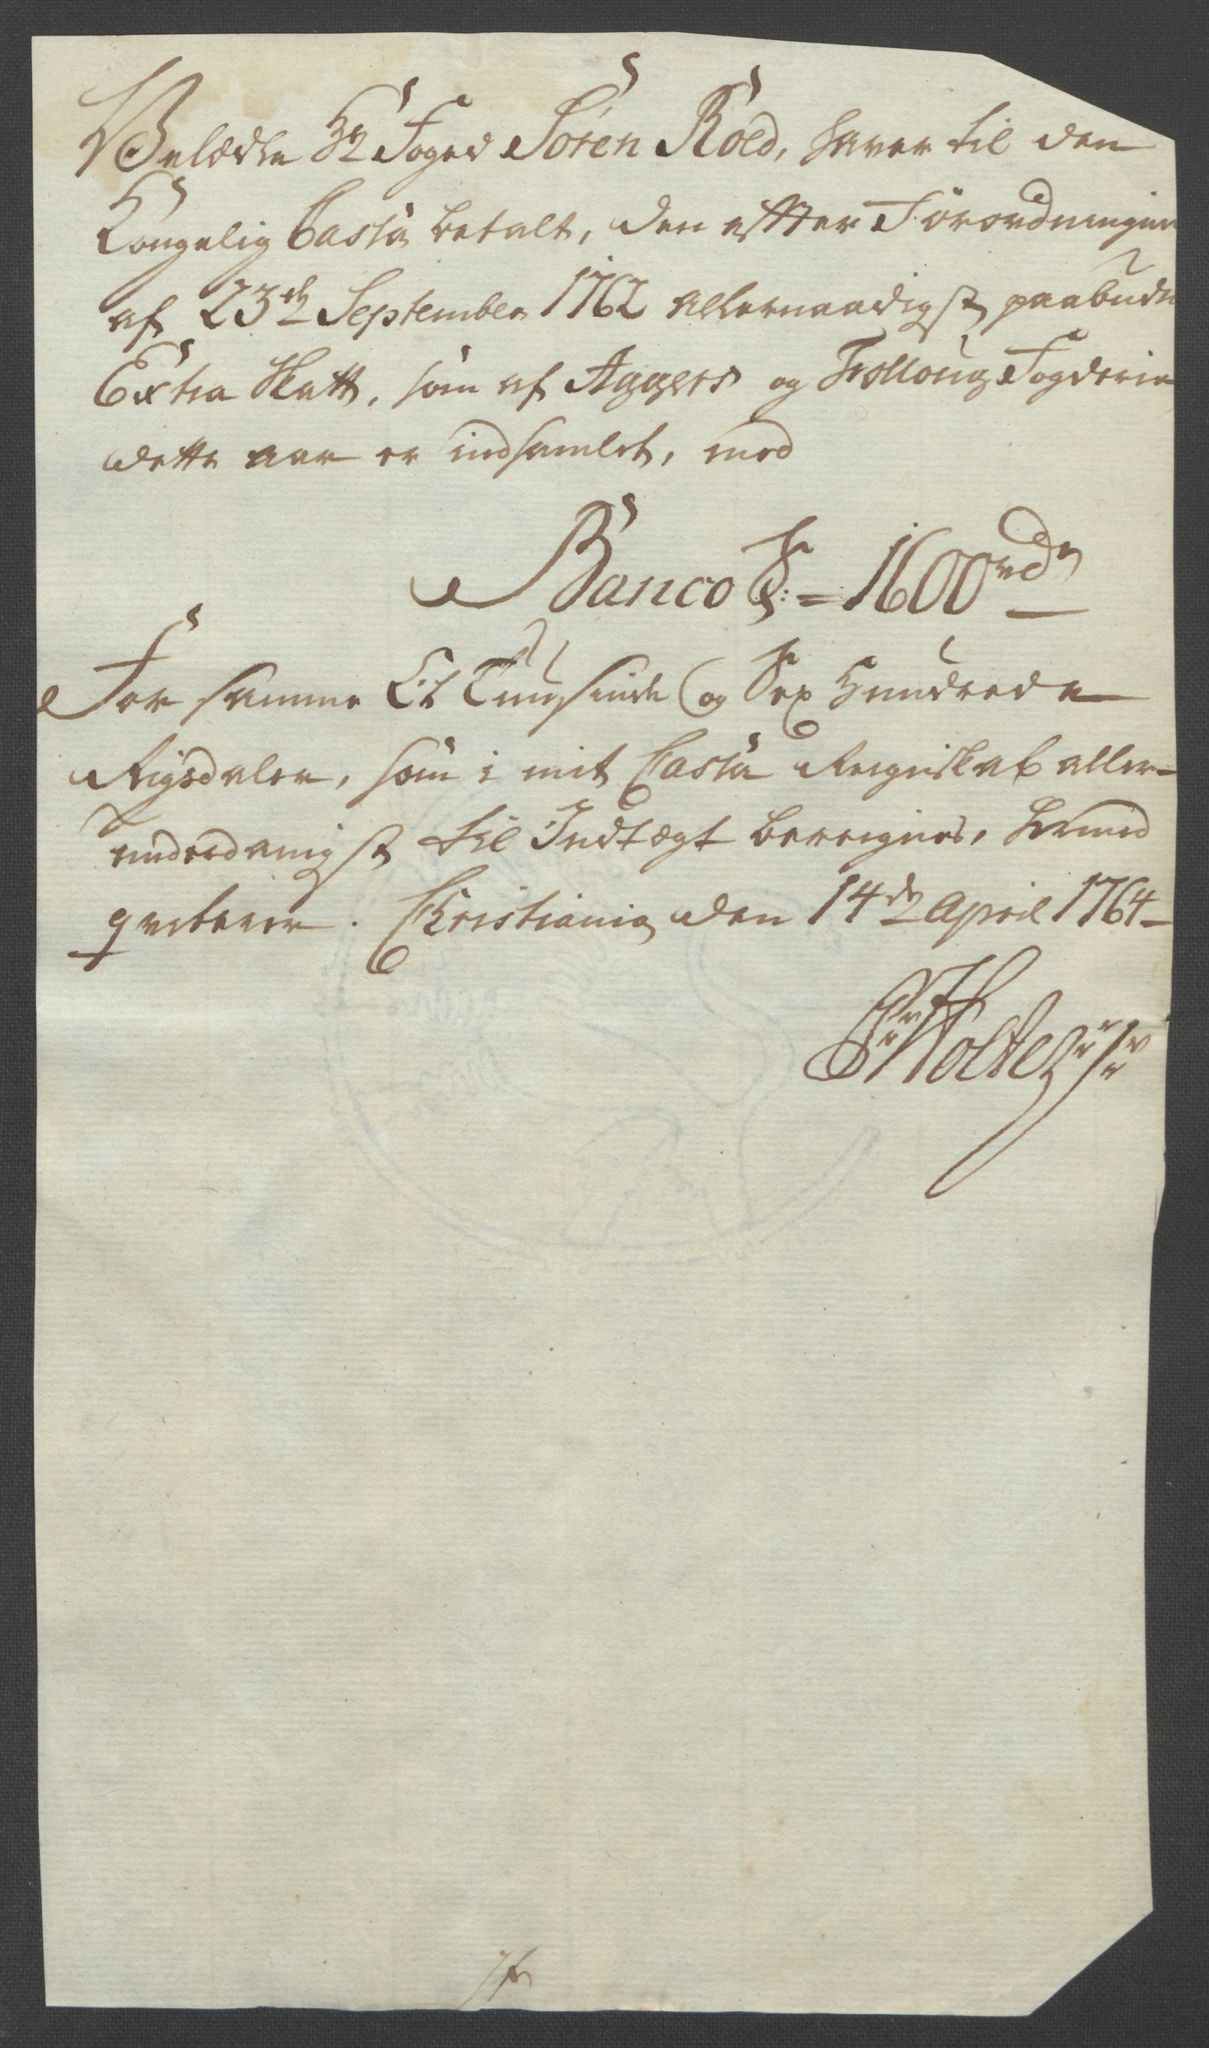 Velædle Hr Foged Sören Röed, haver til den
Kongelig Cassa betalt, den effter Forordningen
af 23de September 1762 allernaadigst paabudne
Extra Skatt, som af Aggers og Folloug Fogderie
dette aar er indsamlet, med
Banco S: = 1600 rdr
For samme Et Tuusinde og Sex Hundrede
Rigsdaler, som i mit Cassa Regnskab aller-
underdanigst til Indtægt beregnes, hermed
qviterer. Christiania den 14de April 1764
Holte